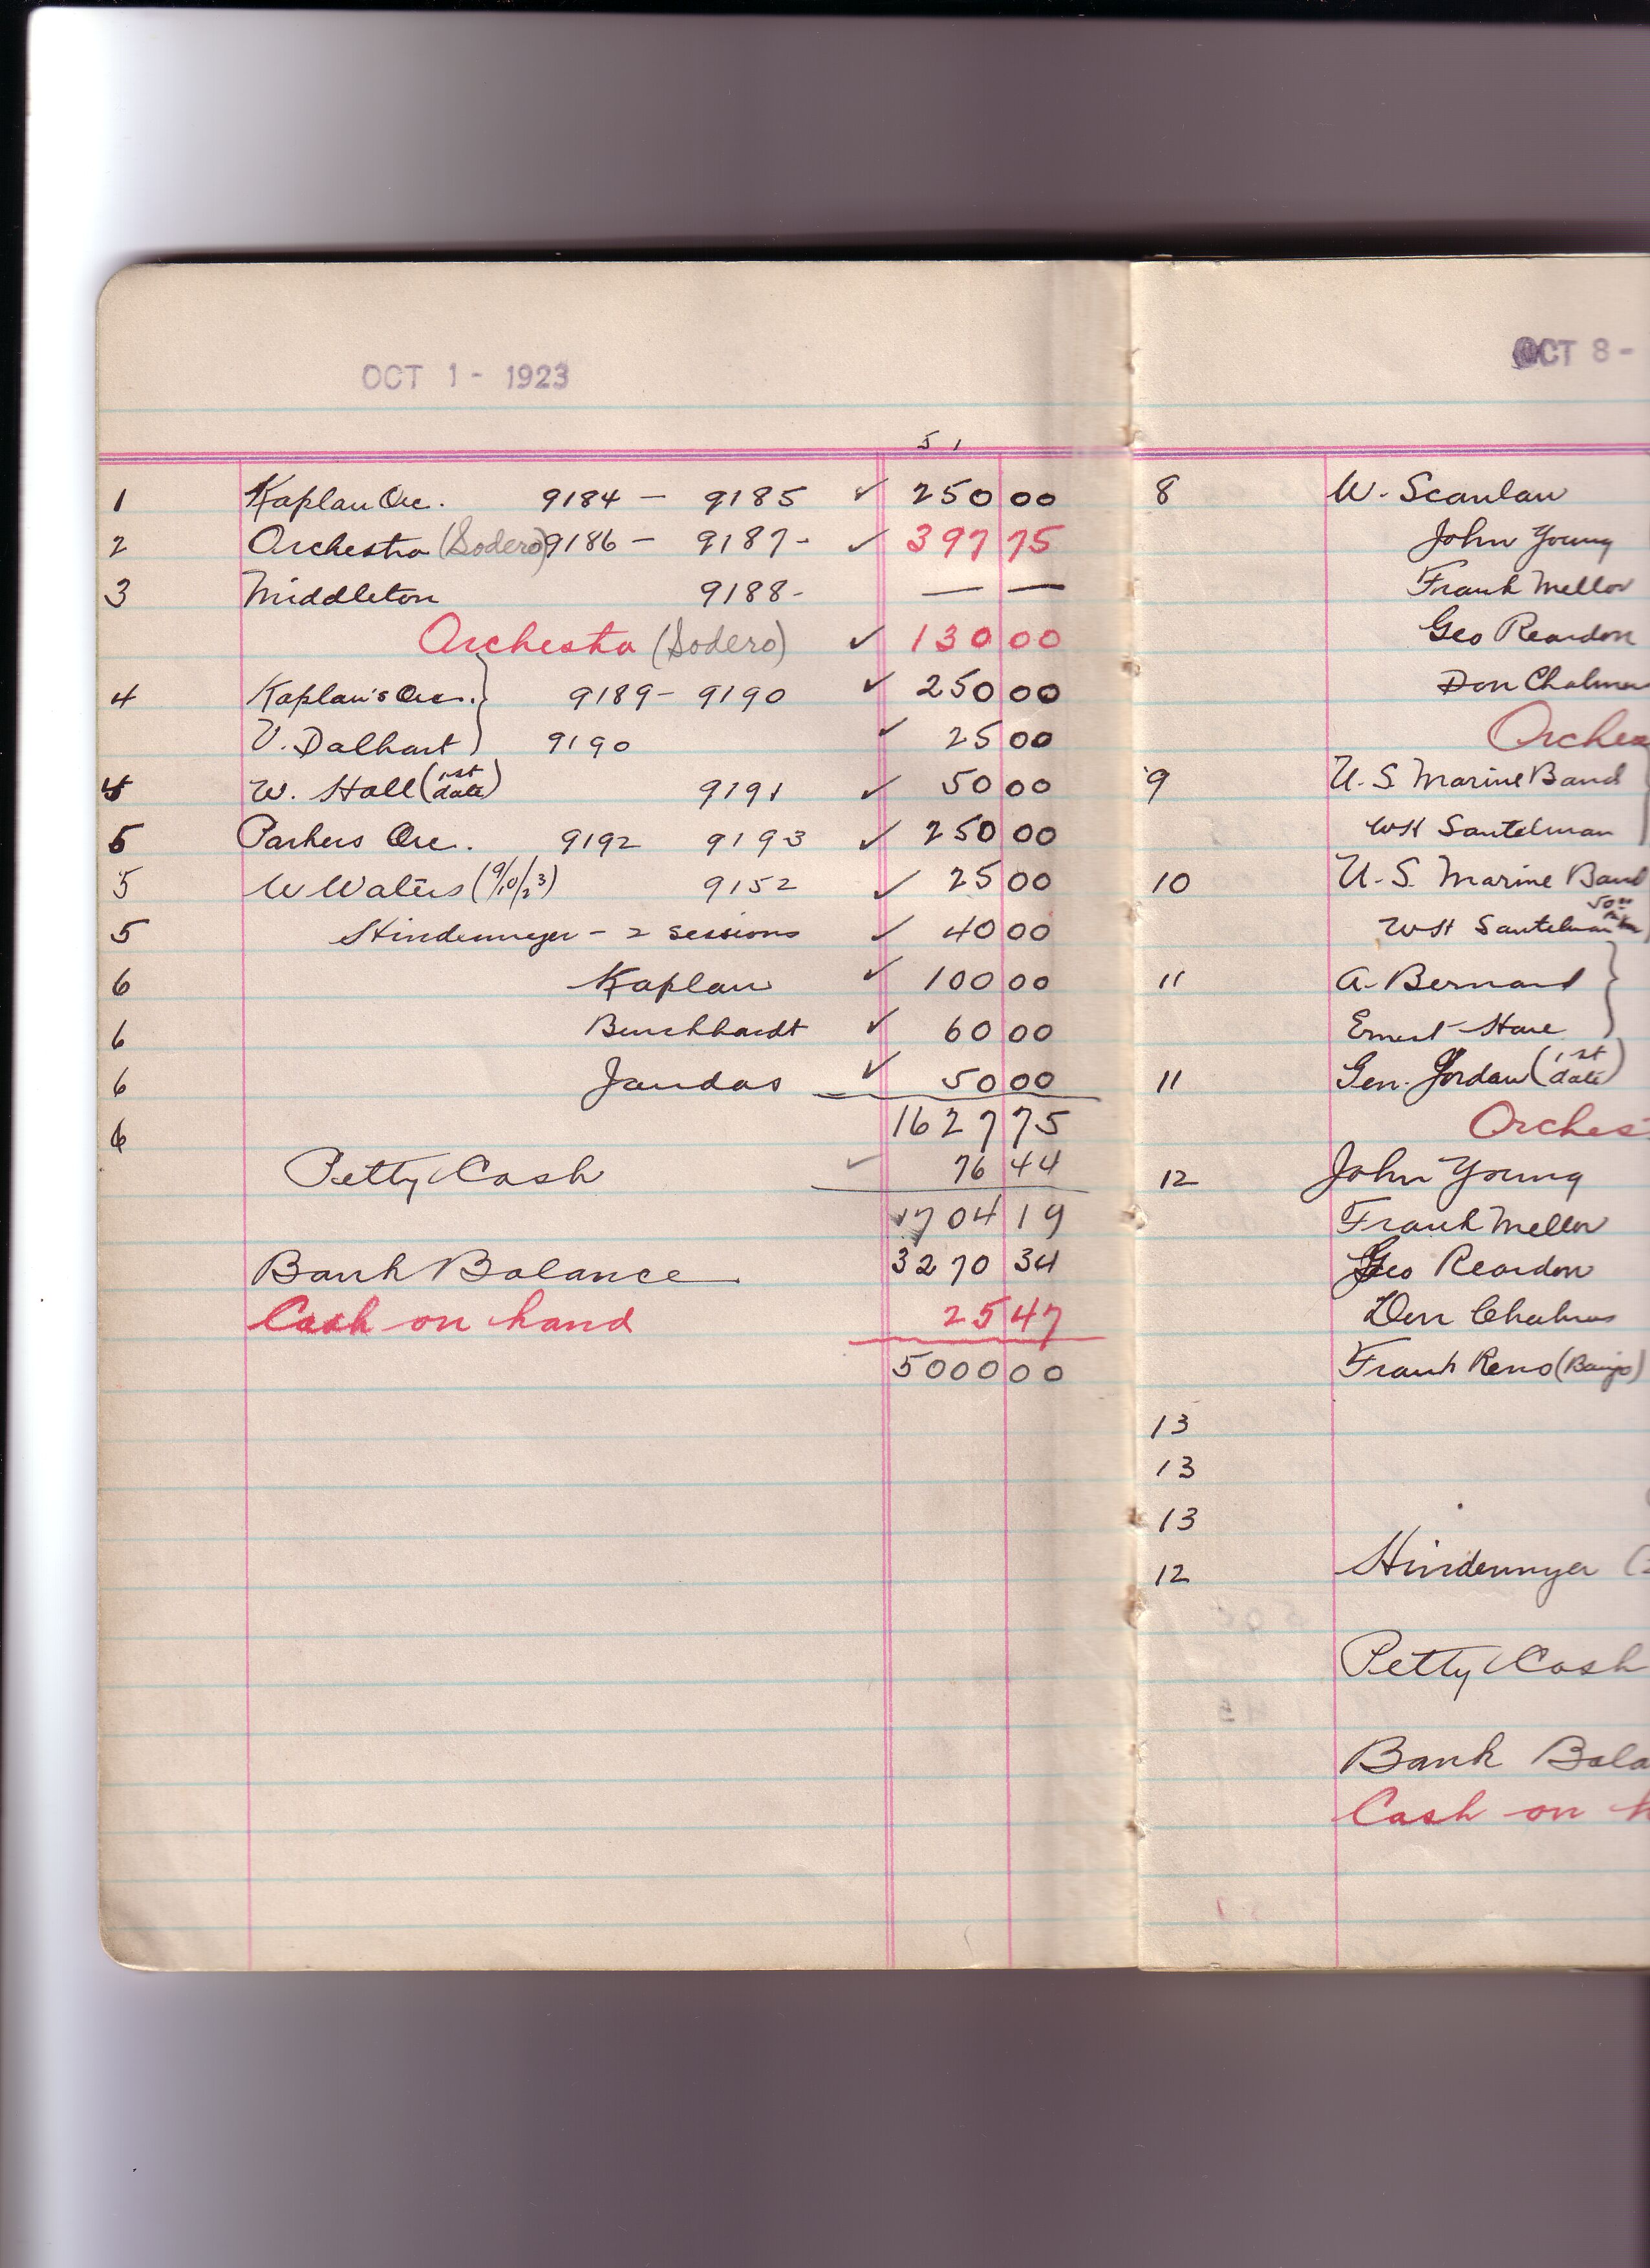 OCT 1 - 1923
5 1
1 Kaplan Orc. 9184 - 9185 ✓ 250 00
2 Orchestra (Sodero) 9186 - 9187 - ✓ 397 75
3 Middleton 9188 - — —
Orchestra (Sodero) ✓ 130 00
4 Kaplan's Orc. } 9189 - 9190 ✓ 250 00
V. Dalhart } 9190 ✓ 25 00
W. Hall (1st date) 9191 ✓ 50 00
5 Parkers Orc. 9192 9193 ✓ 250 00
5 W Waters (9/10/23) 9152 ✓ 25 00
5 Hindermeyer - 2 sessions ✓ 40 00
6 Kaplan ✓ 100 00
6 Burckhardt ✓ 60 00
6 Jaudas ✓ 50 00
6 1627 75
Petty Cash ✓ 76 44
1704 19
Bank Balance 3270 34
Cash on hand 25 47
5000 00
OCT 8 -
8 W. Scanlan
John Young
Frank Mellor
Geo Reardon
Don Chalmer
Orches
9 U. S. Marine Band
WH Santelman
10 U. S. Marine Band
50 00
WH Santelman
11 A. Bernard }
Ernest Hare }
11 Gen. Jordan (1st date)
Orches
12 John Young
Frank Mellor
Geo Reardon
Don Chalmers
Frank Reno (Banjo)
13
13
13
12 Hindermyer (
Petty Cash
Bank Bala
Cash on h